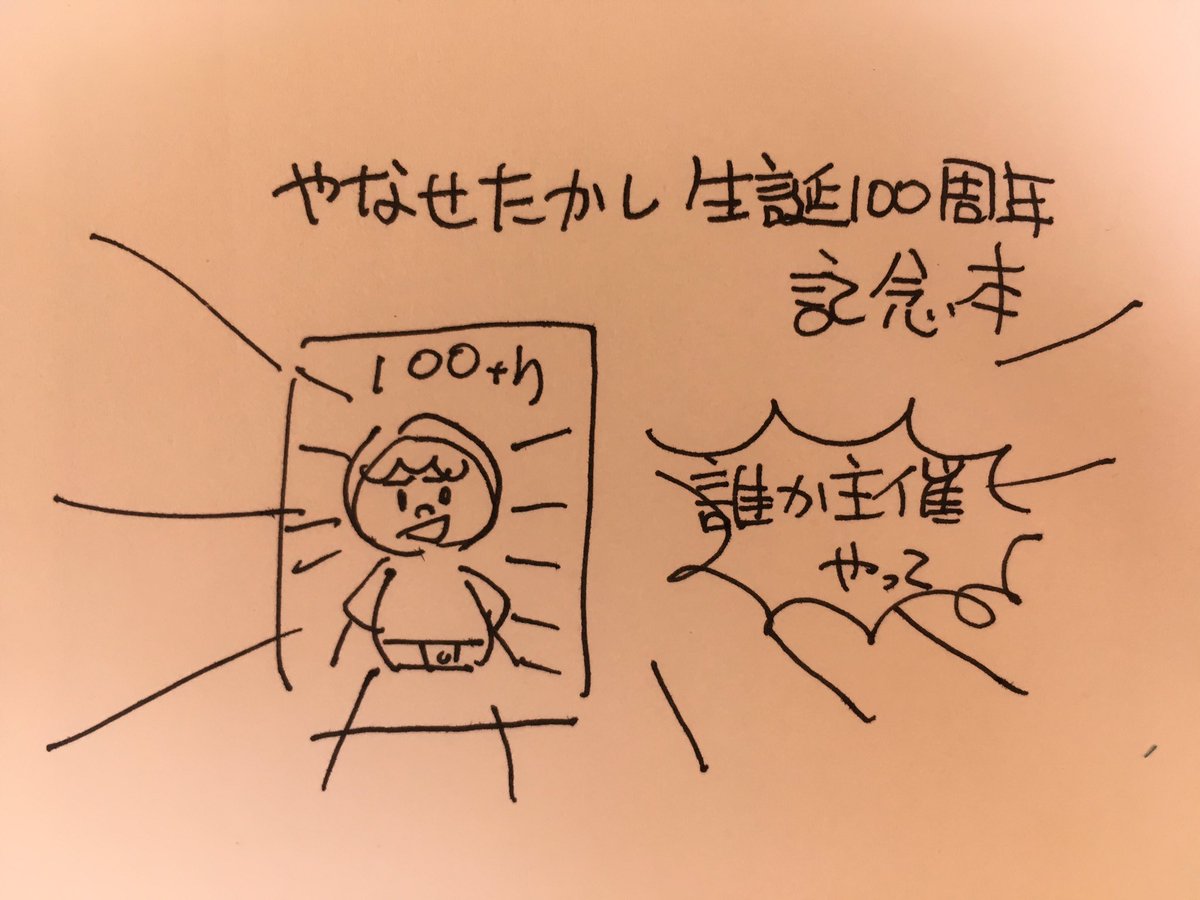 やなせたかし 生誕100周年
記念本
100+h
誰か主催
やって